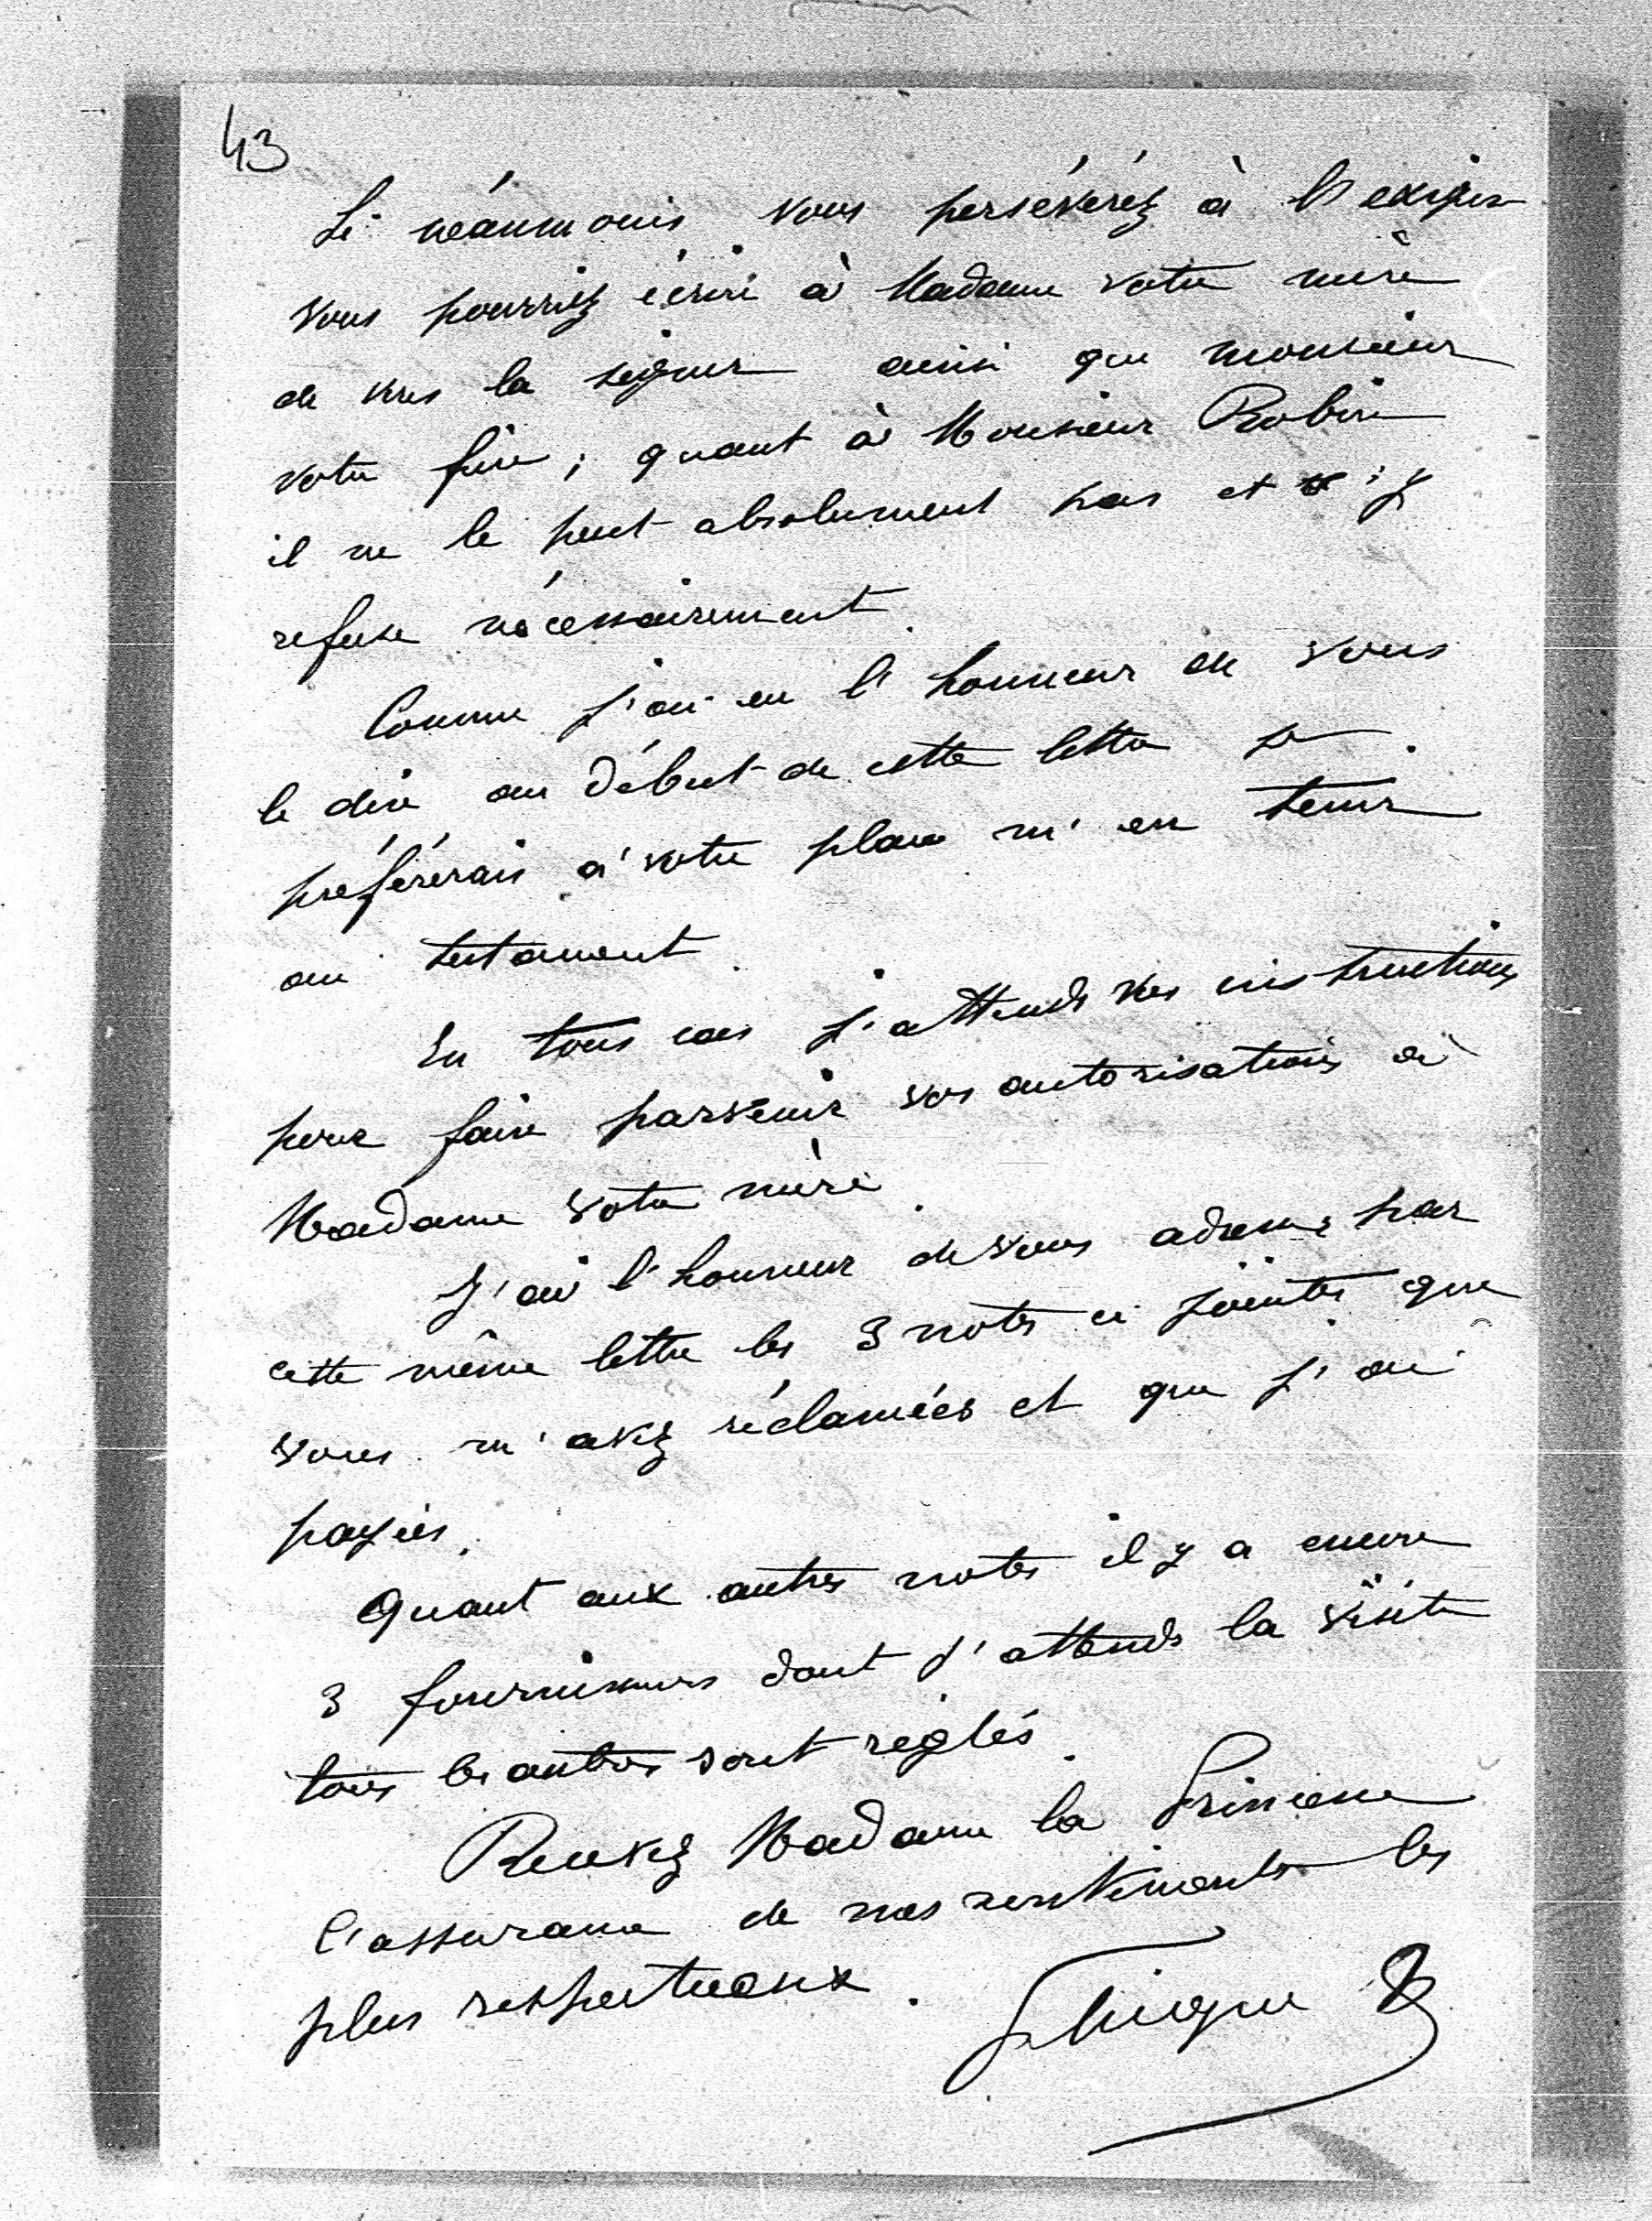 43
Si néanmoins vous persévérez à l'exiger
vous pourriez écrire à Madame votre mère
de vous la signer ainsi que monsieur
votre frère ; quant à Monsieur Robin
il ne le peut absolument pas et s'y
refuse nécessairement.
Comme j'ai eu l'honneur de vous
le dire au début de cette lettre je
préférerais à votre place m'en tenir
au testament.
En tous cas j'attends vos instructions
pour faire parvenir vos autorisations à
Madame votre mère.
J'ai l'honneur de vous adresser par
cette même lettre les 3 notes ci jointes que
vous m'avez réclamées et que j'ai
payées.
Quant aux autres notes il y a encore
3 fournisseurs dont j'attends la visite
tous les autres sont réglés.
Recevez Madame la Princesse
l'assurance de mes sentiments les
plus respectueux.